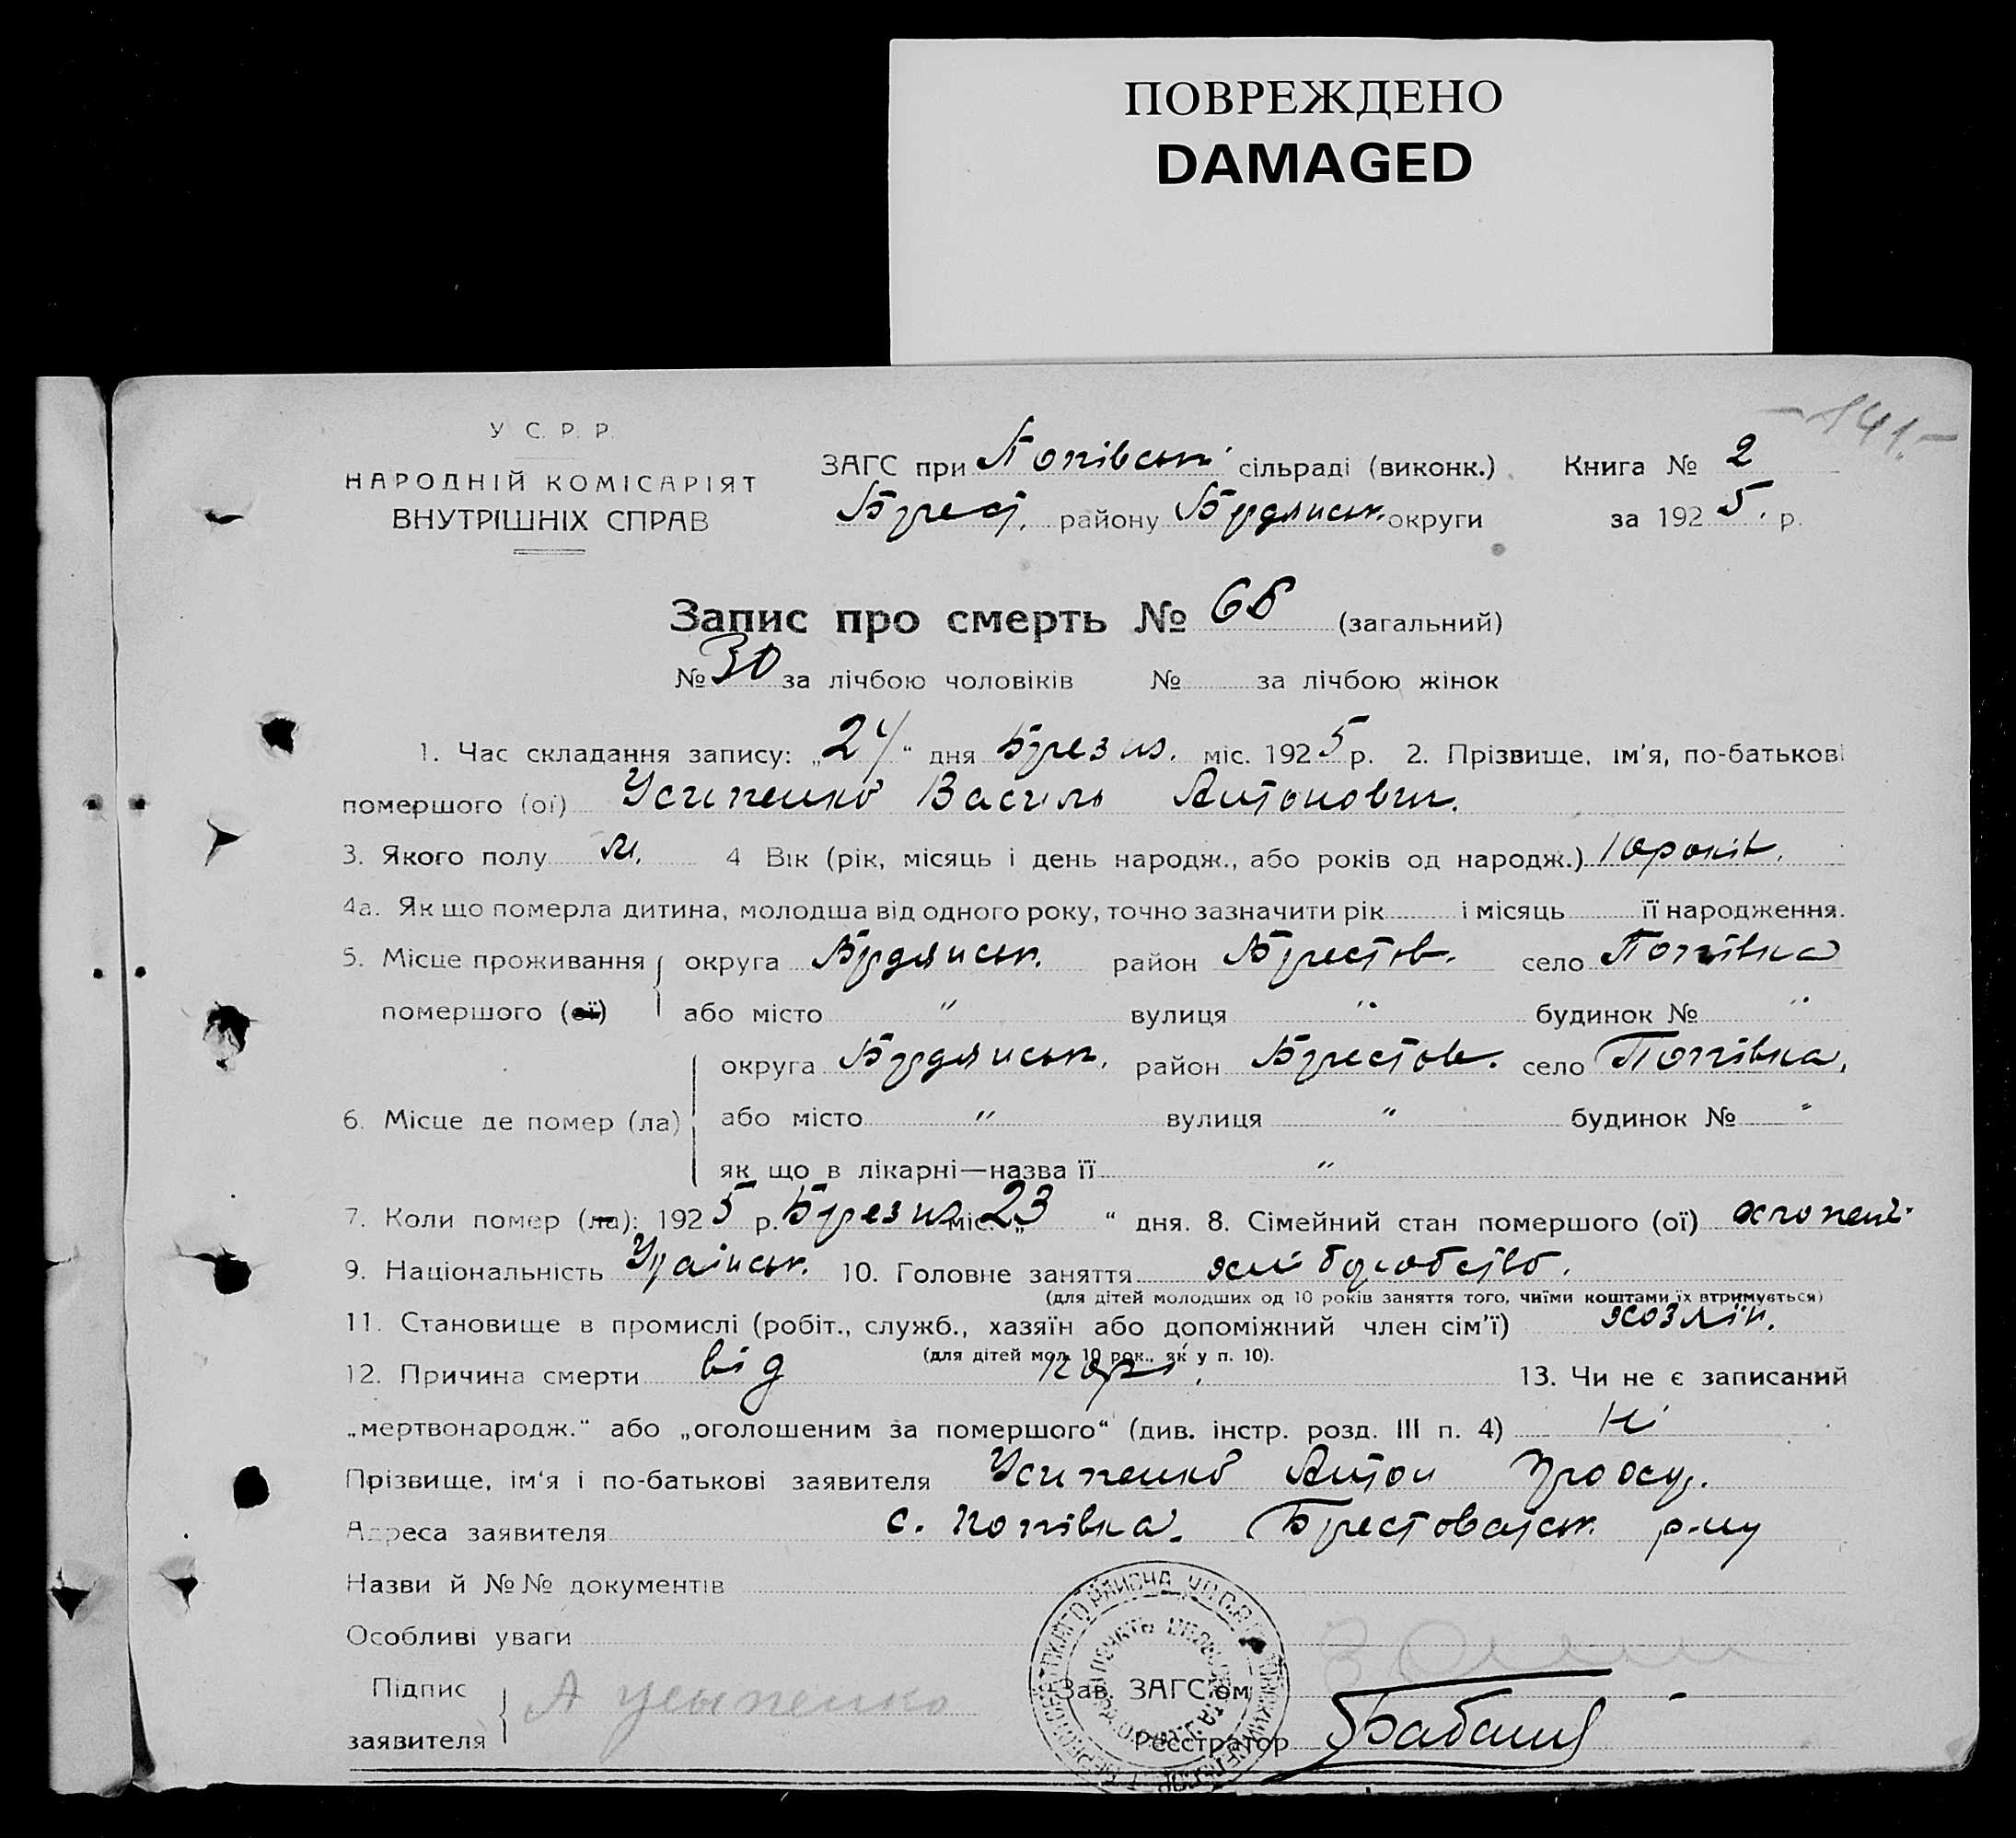 ПОВРЕЖДЕНО
DAMAGED
- 141 -
У С. Р. Р.
НАРОДНІЙ КОМІСАРІЯТ
ВНУТРІШНІХ СПРАВ
ЗАГС при Попівськ. сільраді (виконк.) Книга № 2
Брест. району Бердянськ. округи за 1925. р.
Запис про смерть № 66 (загальний)
№ 30 за лічбою чоловіків № за лічбою жінок
1. Час складання запису: „24“ дня Березня. міс. 1925 р. 2. Прізвище, ім'я, по-батькові
помершого (ої) Усипенко Василь Антонович.
3. Якого полу м. 4 Вік (рік, місяць і день народж., або років од народж.) 10 років.
4а. Як що померла дитина, молодша від одного року, точно зазначити рік і місяць її народження.
5. Місце проживання округа Бердянськ. район Брестов. село Попівка
помершого (ої) або місто " вулиця " будинок № "
округа Бердянськ. район Брестов. село Попівка,
6. Місце де помер (ла) або місто " вулиця " будинок № "
як що в лікарні—назва її "
7. Коли помер (ла): 1925 р. Березня міс. „23“ дня. 8. Сімейний стан помершого (ої) хлопець.
9. Національність Українськ. 10. Головне заняття хліборобство.
(для дітей молодших од 10 років заняття того, чиїми коштами їх втримується)
11. Становище в промислі (робіт., служб., хазяїн або допоміжний член сім'ї) хозяїн.
(для дітей мол. 10 рок., як у п. 10).
12. Причина смерти від корі. 13. Чи не є записаний
„мертвонародж.“ або „оголошеним за помершого“ (див. інстр. розд. III п. 4) Ні
Прізвище, ім'я і по-батькові заявителя Усипенко Антон
Адреса заявителя с. Попівка. Брестоватськ. р-ну
Назви й №№ документів
Особливі уваги
Підпис
заявителя А Усыпенко
Зав. ЗАГС'ом
Реєстратор